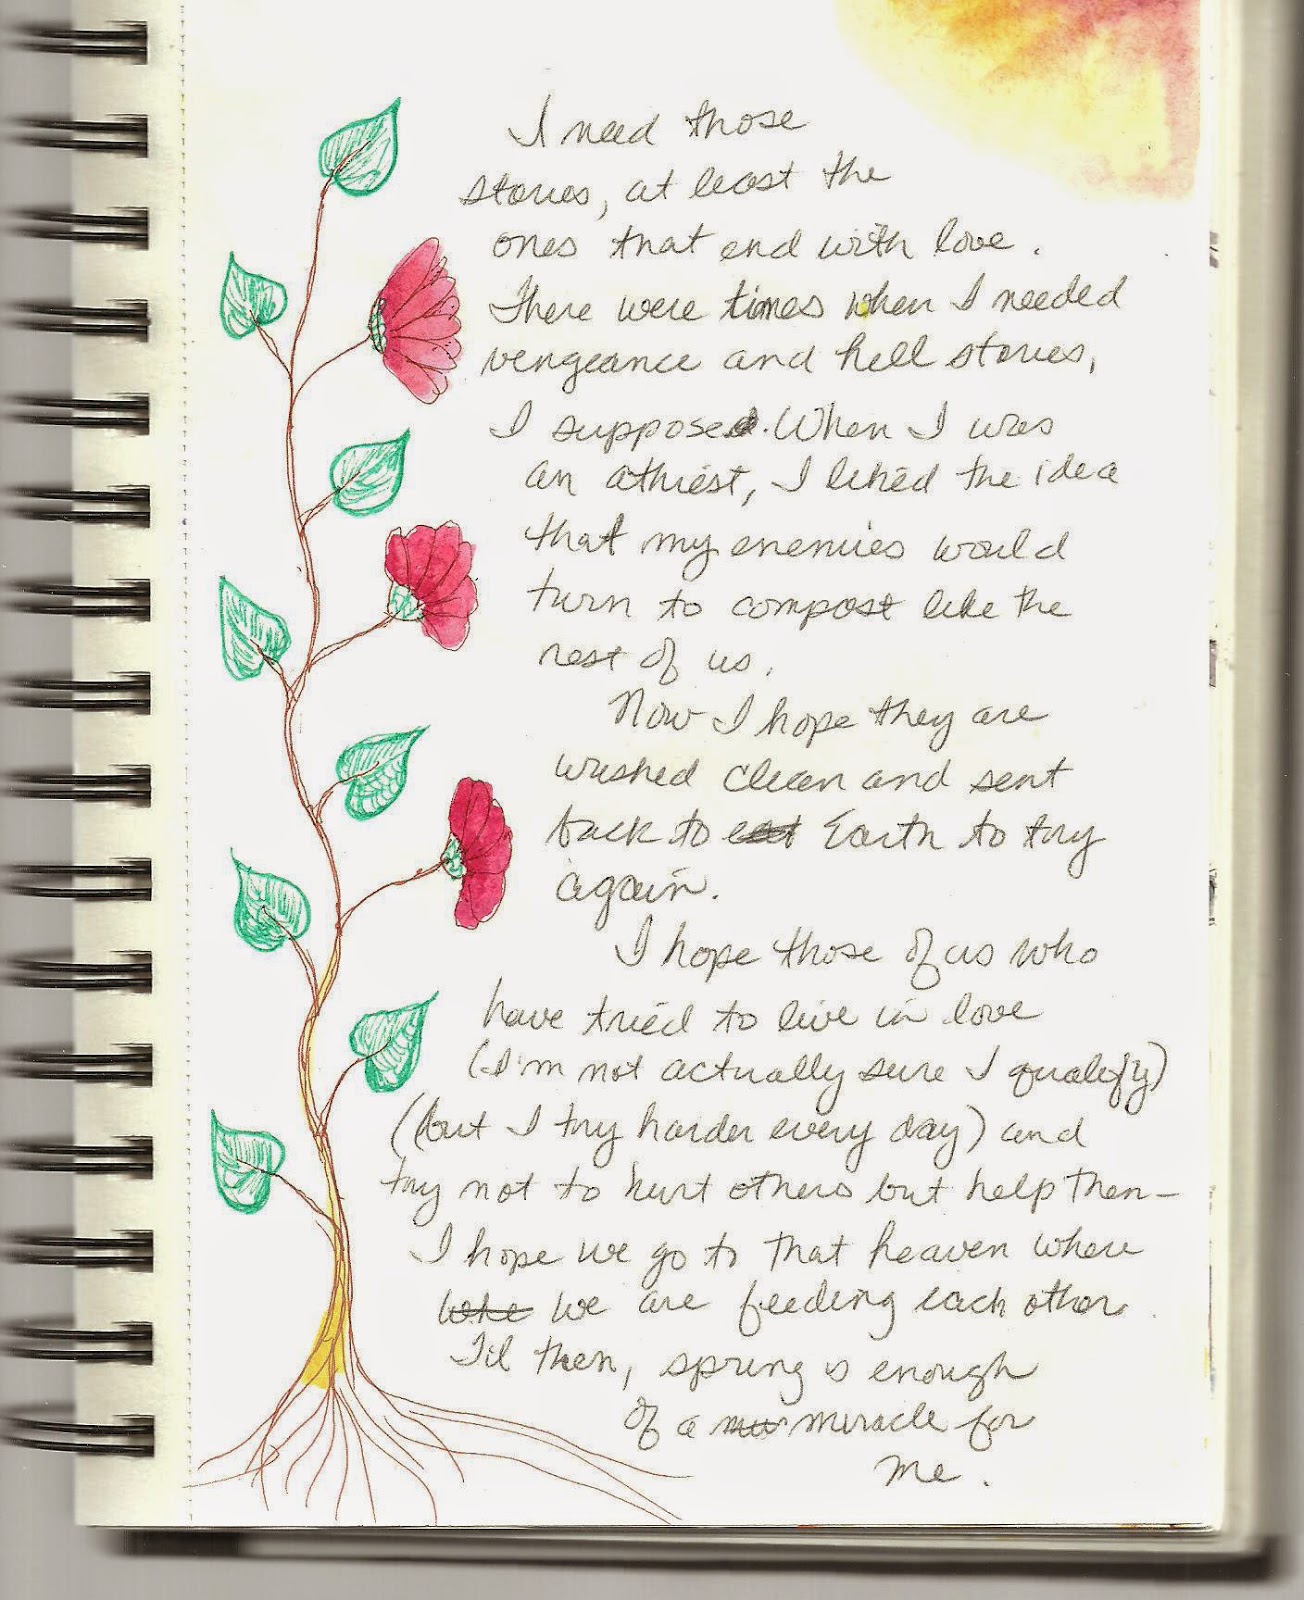 I need those
stories, at least the
ones that end with love.
There were times when I needed
vengeance and hell stories,
I suppose. When I was
an athiest, I liked the idea
that my enemies would
turn to compost like the
rest of us.
Now I hope they are
washed clean and sent
back to Earth to try
again.
I hope those of us who
have tried to live in love
(I'm not actually sure I qualify)
(but I try harder every day) and
try not to hurt others but help them—
I hope we go to that heaven where
we are feeding each other.
Til then, spring is enough
of a miracle for
me.